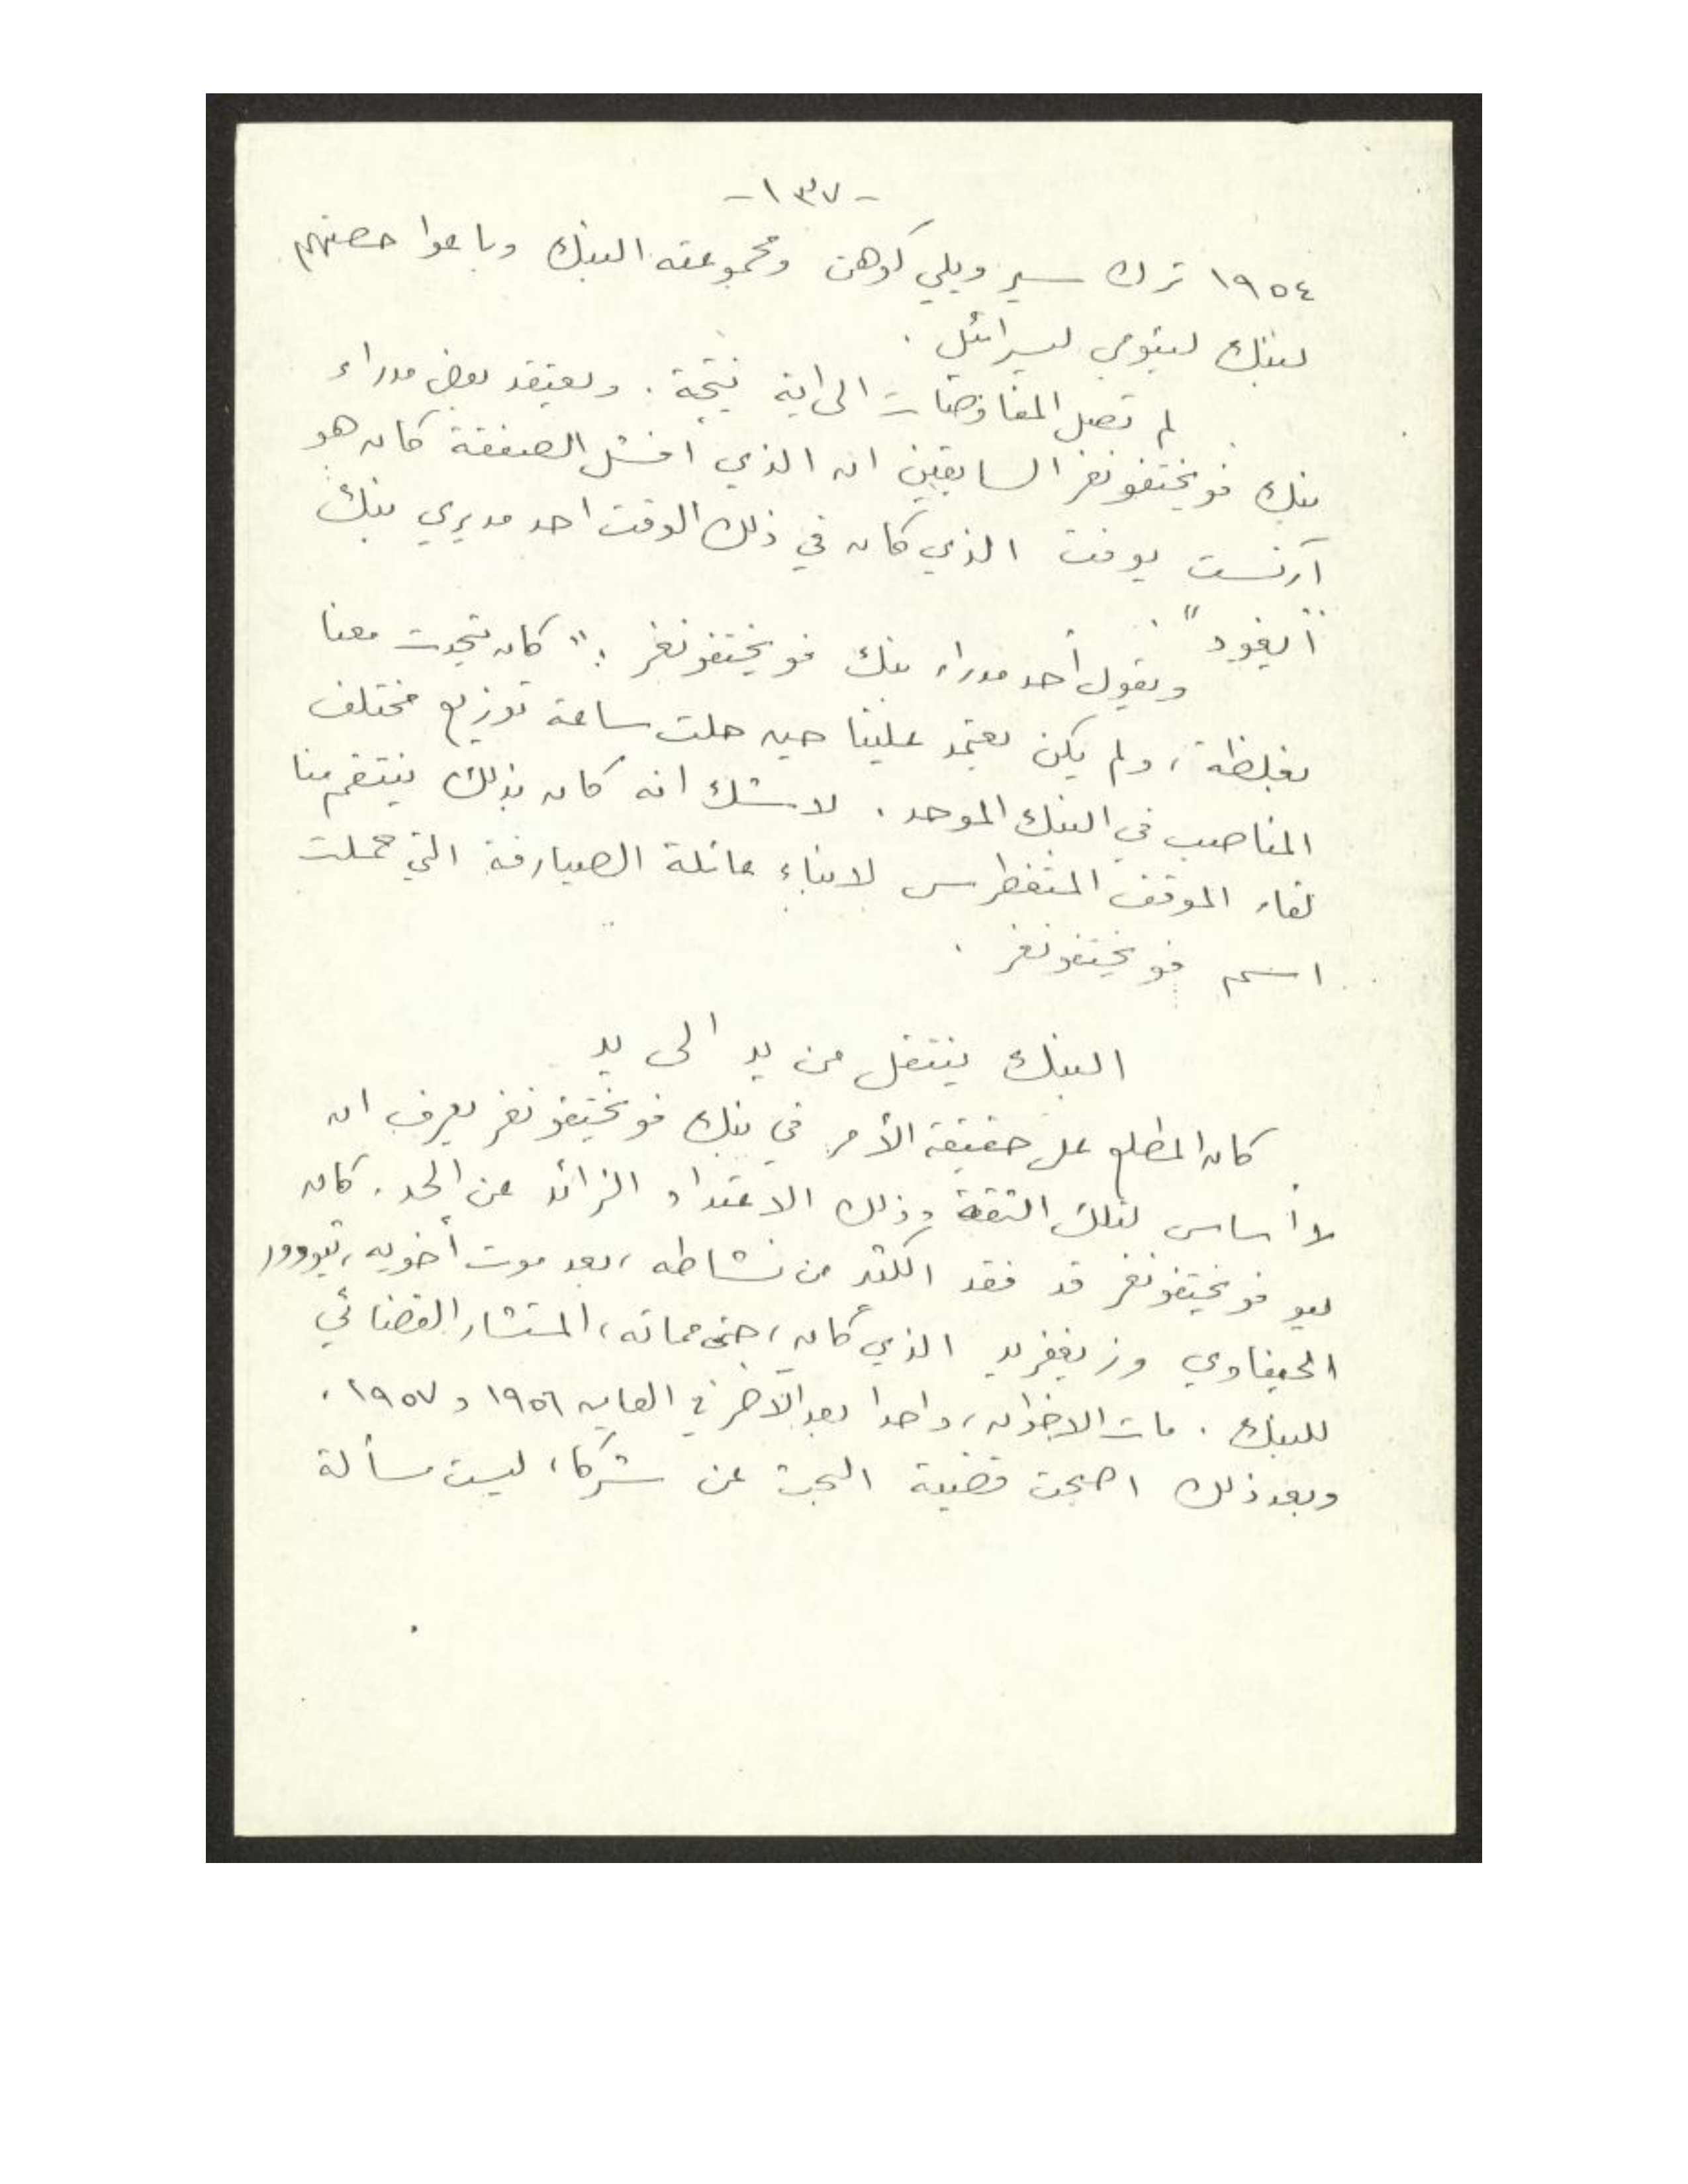 - ١٣٧ -
١٩٥٤ ترك سير ويلي كوهن ومجموعته البنك وباعوا حصتهم
لبنك ليئومي ليسرائيل .
لم تصل المفاوضات الى اية نتيجة . ويعتقد بعض مدراء
بنك فويختفونغر السابقين ان الذي افشل الصفقة كان هو
آرنست يوفت الذي كان في ذلك الوقت احد مديري بنك
"ايغود" .
ويقول أحد مدراء بنك فويختفونغر : " كان يتحدث معنا
بغلظة ، ولم يكن يعتمد علينا حين حلت ساعة توزيع مختلف
المناصب في البنك الموحد . لا شك انه كان بذلك ينتقم منا
لقاء الموقف المتغطرس لابناء عائلة الصيارفة التي حملت
اسم فويختفونغر .
البنك ينتقل من يد الى يد
كان المطلع على حقيقة الأمر في بنك فويختفونغر يعرف ان
لا أساس لتلك الثقة وذلك الاعتداد الزائد عن الحد . كان
ليو فويختفونغر قد فقد الكثير من نشاطه ، بعد موت أخويه ، تيودور
الحيفاوي وزيغفريد الذي كان ، حتى مماته ، المستشار القضائي
للبنك . مات الاخوان ، واحدا بعد الآخر في العامين ١٩٥٦ و ١٩٥٧ ،
وبعد ذلك اصبحت قضية البحث عن شركاء ليست مسألة